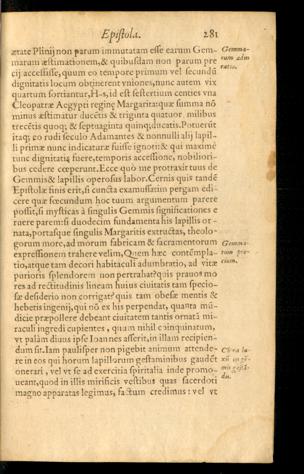 Epistola. 281
ætate Plinij non parum immutatam esse earum Gem-
marum æstimationem, & quibusdam non parum pre
cij accessisse, quum eo tempore primum vel secundū
dignitatis locum obtinerent vniones, nunc autem vix
quartum sortiantur, H-s, id est sestertium centies vna
Cleopatræ Aegypti reginę Margaritaquę summa nō
minus æstimatur ducétis & triginta quatuor milibus
trecētis quoq; & septuaginta quinq; ducatis. Potuerūt
itaq; eo rudi seculo Adamantes & nonnulli alij lapil-
li primæ nunc indicaturæ fuisse ignoti: & qui maximè
tunc dignitatis fuere, temporis accessione, nobiliori-
bus cedere cœperunt. Ecce quò me protraxit tuus de
Gemmis & lapillis operosus labor. Cernis quis tandē
Epistolæ finis erit, si cuncta examussatim pergam edi-
cere quæ fœcundum hoc tuum argumentum parere
possit, si mysticas à singulis Gemmis significationes e
ruere paremesi duodecim fundamenta his lapillis or-
nata, portasque singulis Margaritis extructas, theolo-
gorum more, ad morum fabricam & sacramentorum
expressionem trahere velim, Quem hæc contempla-
tio, atque tam decori habitaculi adumbratio, ad vitæ
purioris splendorem non pertrahat? quis prauos mo
res ad rectitudinis lineam huius ciuitatis tam specio-
sæ desiderio non corrigat? quis tam obesæ mentis &
hebetis ingenij, qui nō ex his perpendat, quanta mū-
dicie præpollere debeant ciuitatem tantis ornatā mi-
raculi ingredi cupientes, quum nihil coinquinatum,
vt palàm diuus ipse Ioannes asserit, in illam recipien-
dum sit. Iam paulisper non pigebit animum attende-
re in eos qui horum lapillorum gestaminibus gaudēt
onerari, vel vt se ad exercitia spiritalia inde promo-
ueant, quod in illis mirificis vestibus quas sacerdoti
magno apparatas legimus, factum credimus: vel vt
Gemma-
rum
Gemma-
rum